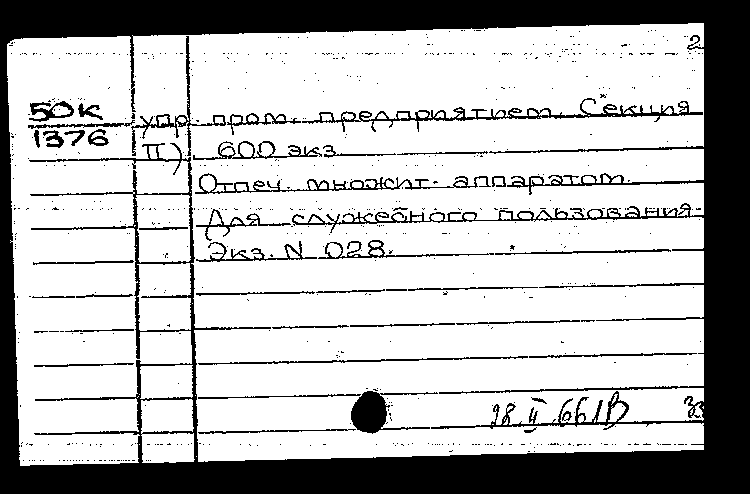 2
50К
1376
упр. пром. предприятием. Секция
II) 600 экз.
Отпеч. множит. аппаратом.
Для служебного пользования.
Экз. N 028.